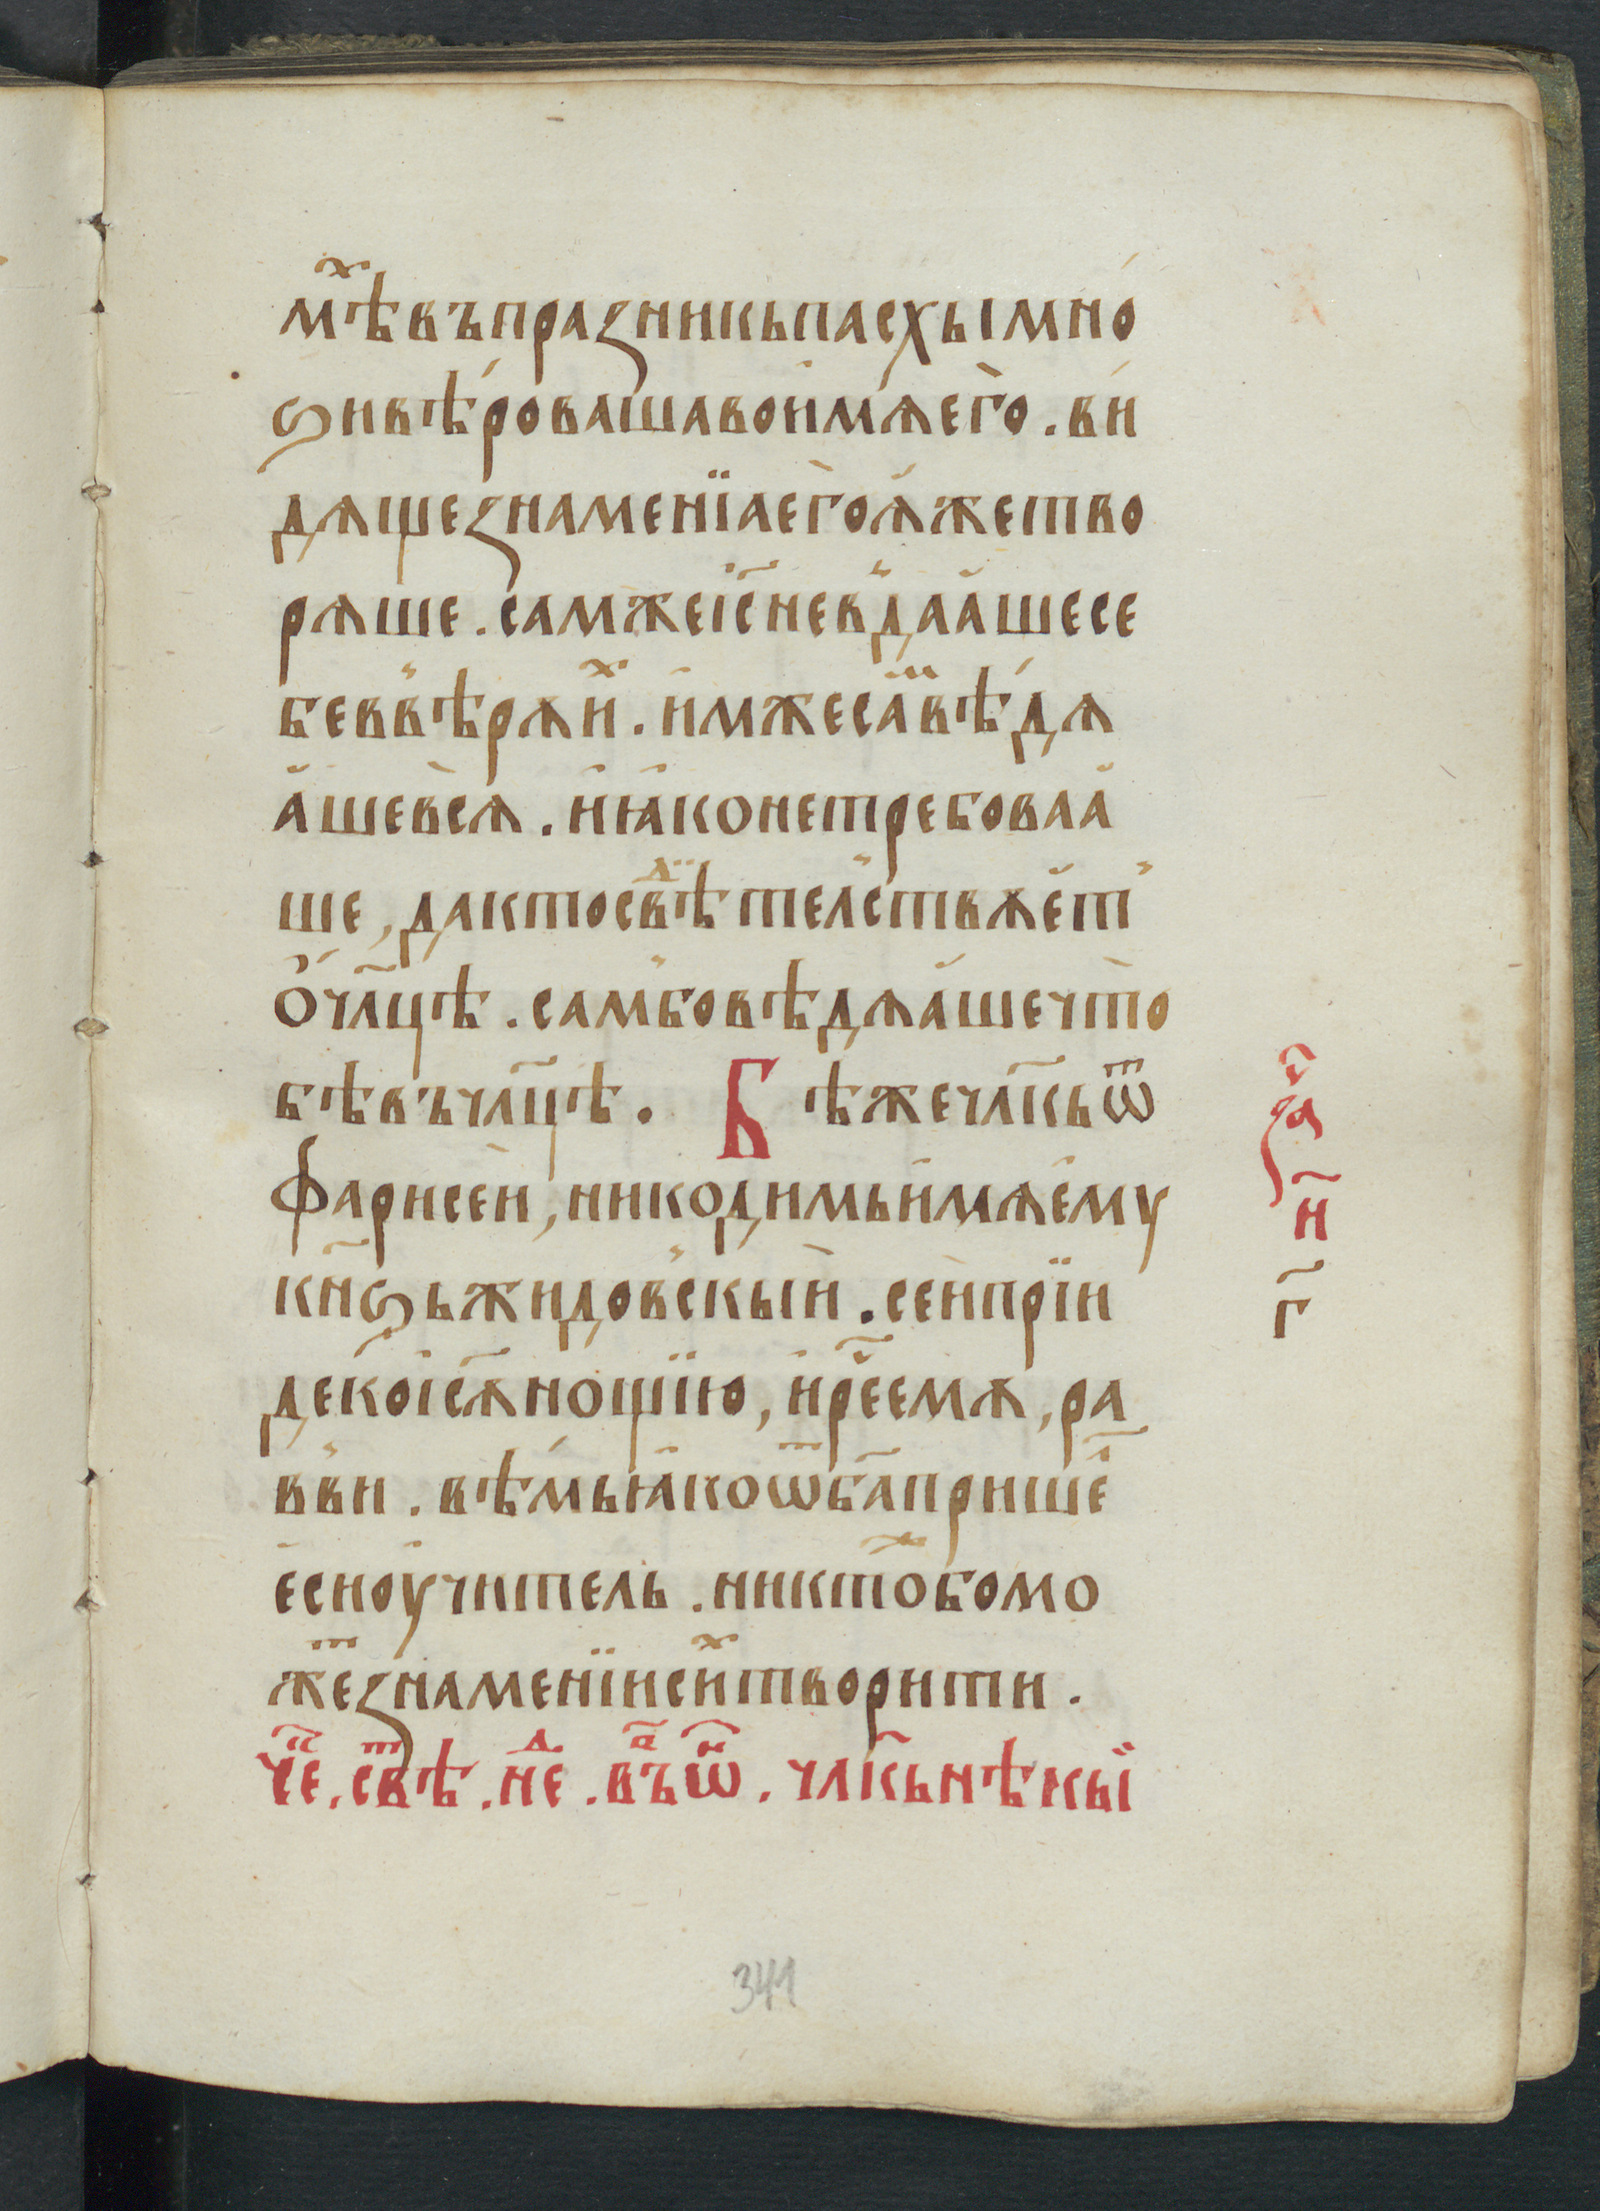 мⷯ҇ѣ въ празникь пасхы мно́
ѕи вѣ́роваша во и҆мѧ е҆го̀ . ви́
дѧще знаменїа е҆го̀ ꙗ҆же тво
рѧше . самже і҆с҃ не вⸯдаа҆ше се
бе в̾вѣрѧ и҆ⷯ . и҆мже саⷨ вѣ́дѧ
а҆ше всѧ̀ . и҆ ꙗ҆ко не требоваа҆
ше , да кто свⷣѣтел̾ствꙋе҆т̾
о҆ чл҃цѣ . сам̾ бо вѣдѧа҆ше что̀
бѣ въ чл҃цѣ . Бѣ же чл҃кь ѿ
фарисе́и , никодимь и҆мѧ е҆му
кн҃ѕь жидов̾скыи̇ . се́и прїи
де ко і҆с҃ꙋ нощїю , и҆ рⷱ҇е емꙋ , ра
в̾ви . вѣ́мь ꙗ҆ко ѿ б҃а пришеⷧ҇
е҆си оу҆читель . никтоⷤ бо мо
жеⷮ знаменїи сиⷯ творити .
Чⷭ҇е . свⷮѣ . неⷣ . въⷡ҇ ѿⷩ҇ . чл҃кь нѣкыи̇
341
за
н҃
г҃